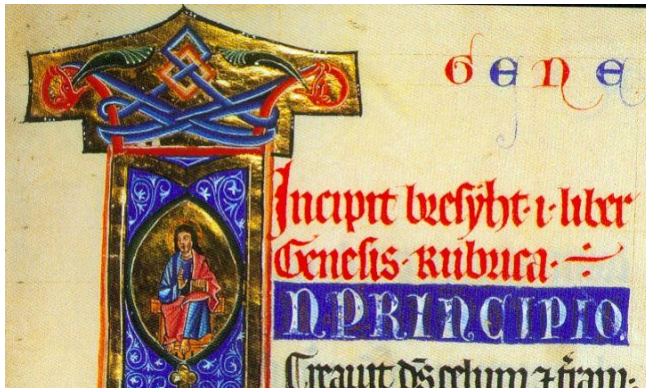 GENE
Incipit bresyht · i · liber
Genesis · Rubrica · ÷
N PRINCIPIO
Creauit d̄s celum ⁊ t̄ram: